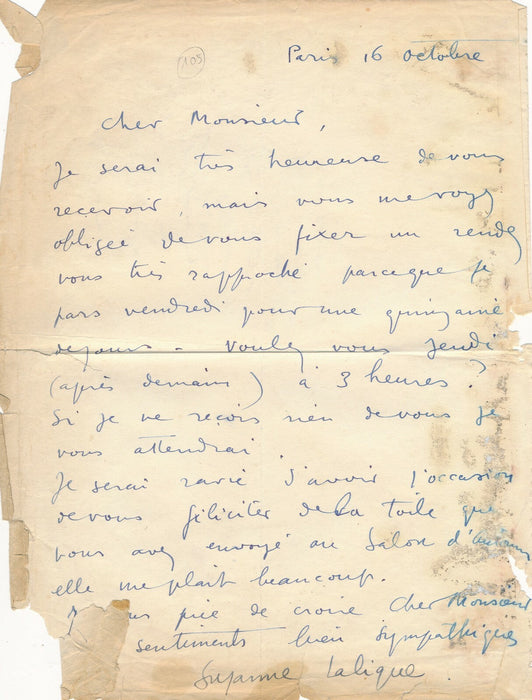 105
Paris 16 Octobre
Cher Monsieur,
Je serai très heureuse de vous
recevoir, mais vous me voyez
obligée de vous fixer un rendez
vous très rapproché parceque je
pars vendredi pour une quinzaine
de jours - Voulez vous Jeudi
(après demain) à 3 heures ?
Si je ne reçois rien de vous je
vous attendrai.
Je serai ravie d'avoir l'occasion
de vous féliciter de la toile que
vous avez envoyé au Salon d'Automne
elle me plait beaucoup.
prie de croire cher Monsieur
sentiments bien sympathiques
Suzanne Lalique